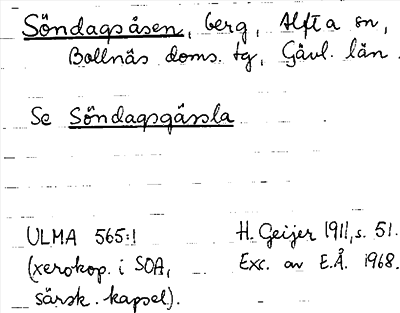 Söndagsåsen, berg, Alfta sn,
Bollnäs doms. tg, Gävl. län.
Se Söndagsgässla
ULMA 565:1 H. Geijer 1911, s. 51.
(xerokop. i SOA, Exc. av E.Å. 1968.
särsk. kapsel).